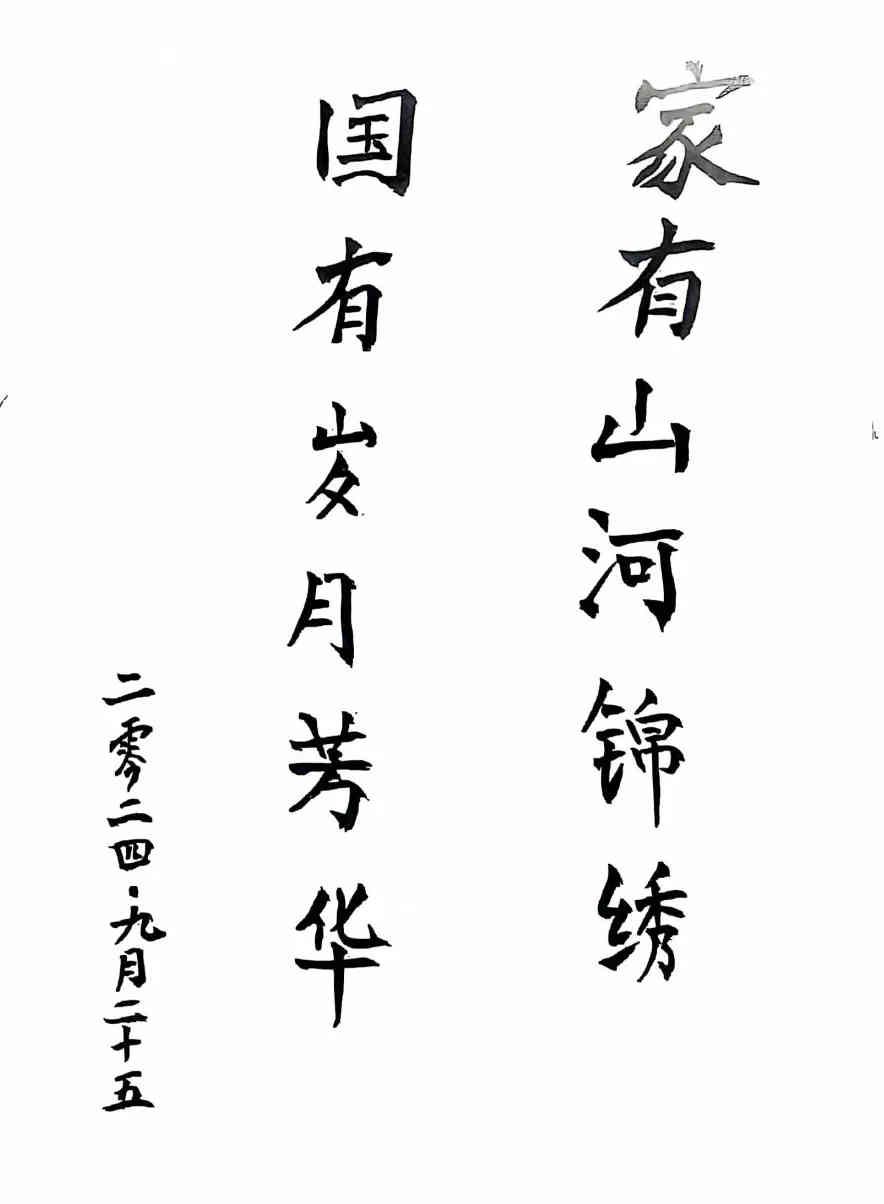 家有山河锦绣
国有岁月芳华
二零二四·九月二十五